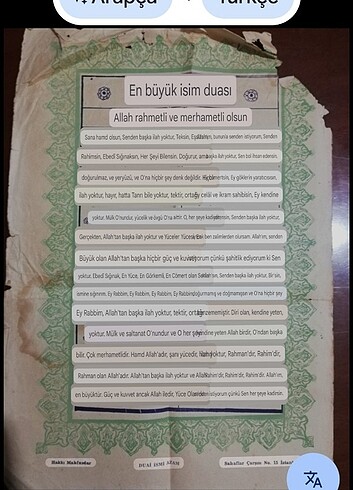 Arapça
Türkçe
En büyük isim duası
Allah rahmetli ve merhametli olsun
Sana hamd olsun, Senden başka ilah yoktur, Teksin, bununla senden istiyorum, Senden
Rahimsin, Ebedi Sığınaksın, Her Şeyi Bilensin. Doğurur, başka ilah yoktur, Sen bizi ihsan edensin,
doğurulmaz, ve yeryüzü, ve O'na hiçbir şey denk değildir. Ey göklerin yaratıcısı,
ilah yoktur, haye, hatta Tanrı bile yoktur, tektir, ortağı Ey celâl ve ikram sahibisin, Ey kendine
yoktur. Mülk O'nundur, yücelik ve övgü O'na aittir. O, her şeye Senden başka ilah yoktur,
Gerçekten, Allah'tan başka ilah yoktur ve Yüceler ben zalimlerden oluşsam. Allah'ım, senden
Büyük olan Allah'tan başka hiçbir güç ve kuvvet istiyorum çünkü şahitlik ediyorum ki Sen
yoktur. Ebedî Sığınak, En Yüce, En Görkemli, En Cömert olan Senden başka ilah yoktur. Bir'sin,
ismine sığınırım, Ey Rabbim, Ey Rabbim, Ey Rabbim, Ey Rabbim, doğurmamış ve doğmamışsın ve O'na hiçbir şey
Ey Rabbim, Allah'tan başka ilah yoktur, tektir, ortağı benzememiştir. Diri olan, kendine yeten,
yoktur. Mülk ve saltanat O'nundur ve O her şeye kendine yeten Allah birdir, O'ndan başka
bilir. Çok merhametlidir. Hamd Allah'adır, şanı yücedir, ilah yoktur, Rahman'dır, Rahim'dir,
Rahman olan Allah'adır. Allah'tan başka ilah yoktur ve Allah Rahim'dir, Rahim'dir, Rahim'dir. Allah'ım,
en büyüktür. Güç ve kuvvet ancak Allah iledir, Yüce Olan senden istiyorum çünkü Sen her şeye kadirsin.
Hakkı Mahfuzdur
DUAİ İSMİ AZAM
Sahaflar Çarşısı No. 15 İstanbul